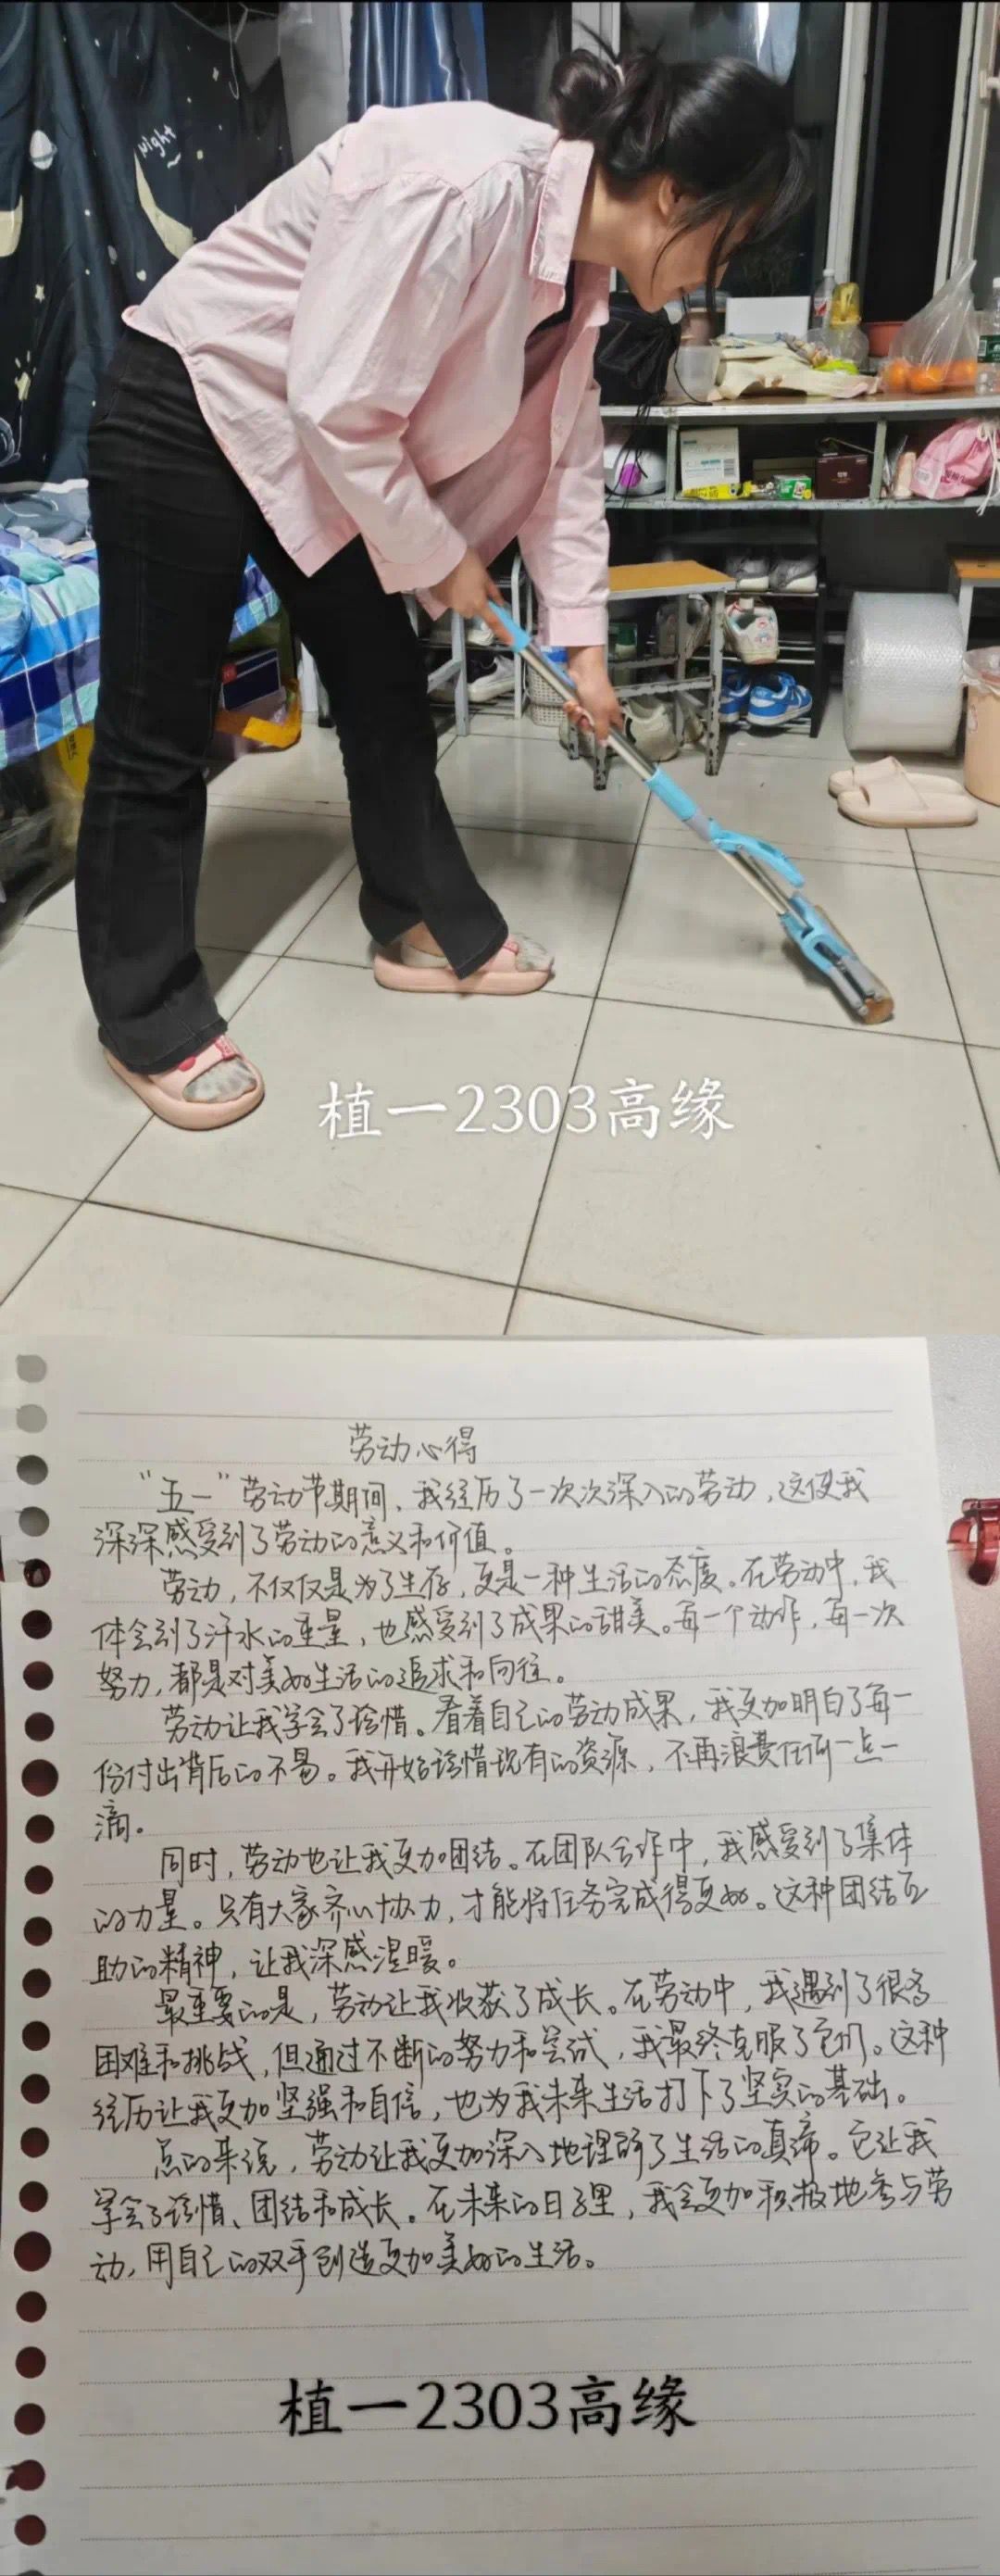 Night
植一2303高缘
劳动心得
“五一”劳动节期间，我经历了一次次深入的劳动，这使我
深深感受到了劳动的意义和价值。
劳动，不仅仅是为了生存，更是一种生活的态度。在劳动中，我
体会到了汗水的重量，也感受到了成果的甜美。每一个动作，每一次
努力，都是对美好生活的追求和向往。
劳动让我学会了珍惜。看着自己的劳动成果，我更加明白了每一
份付出背后的不易。我开始珍惜现有的资源，不再浪费任何一点一
滴。
同时，劳动也让我更加团结。在团队合作中，我感受到了集体
的力量。只有大家齐心协力，才能将任务完成得更好。这种团结互
助的精神，让我深感温暖。
最重要的是，劳动让我收获了成长。在劳动中，我遇到了很多
困难和挑战，但通过不断的努力和尝试，我最终克服了它们。这种
经历让我更加坚强和自信，也为我未来生活打下了坚实的基础。
总的来说，劳动让我更加深入地理解了生活的真谛。它让我
学会了珍惜、团结和成长。在未来的日子里，我会更加积极地参与劳
动，用自己的双手创造更加美好的生活。
植一2303高缘